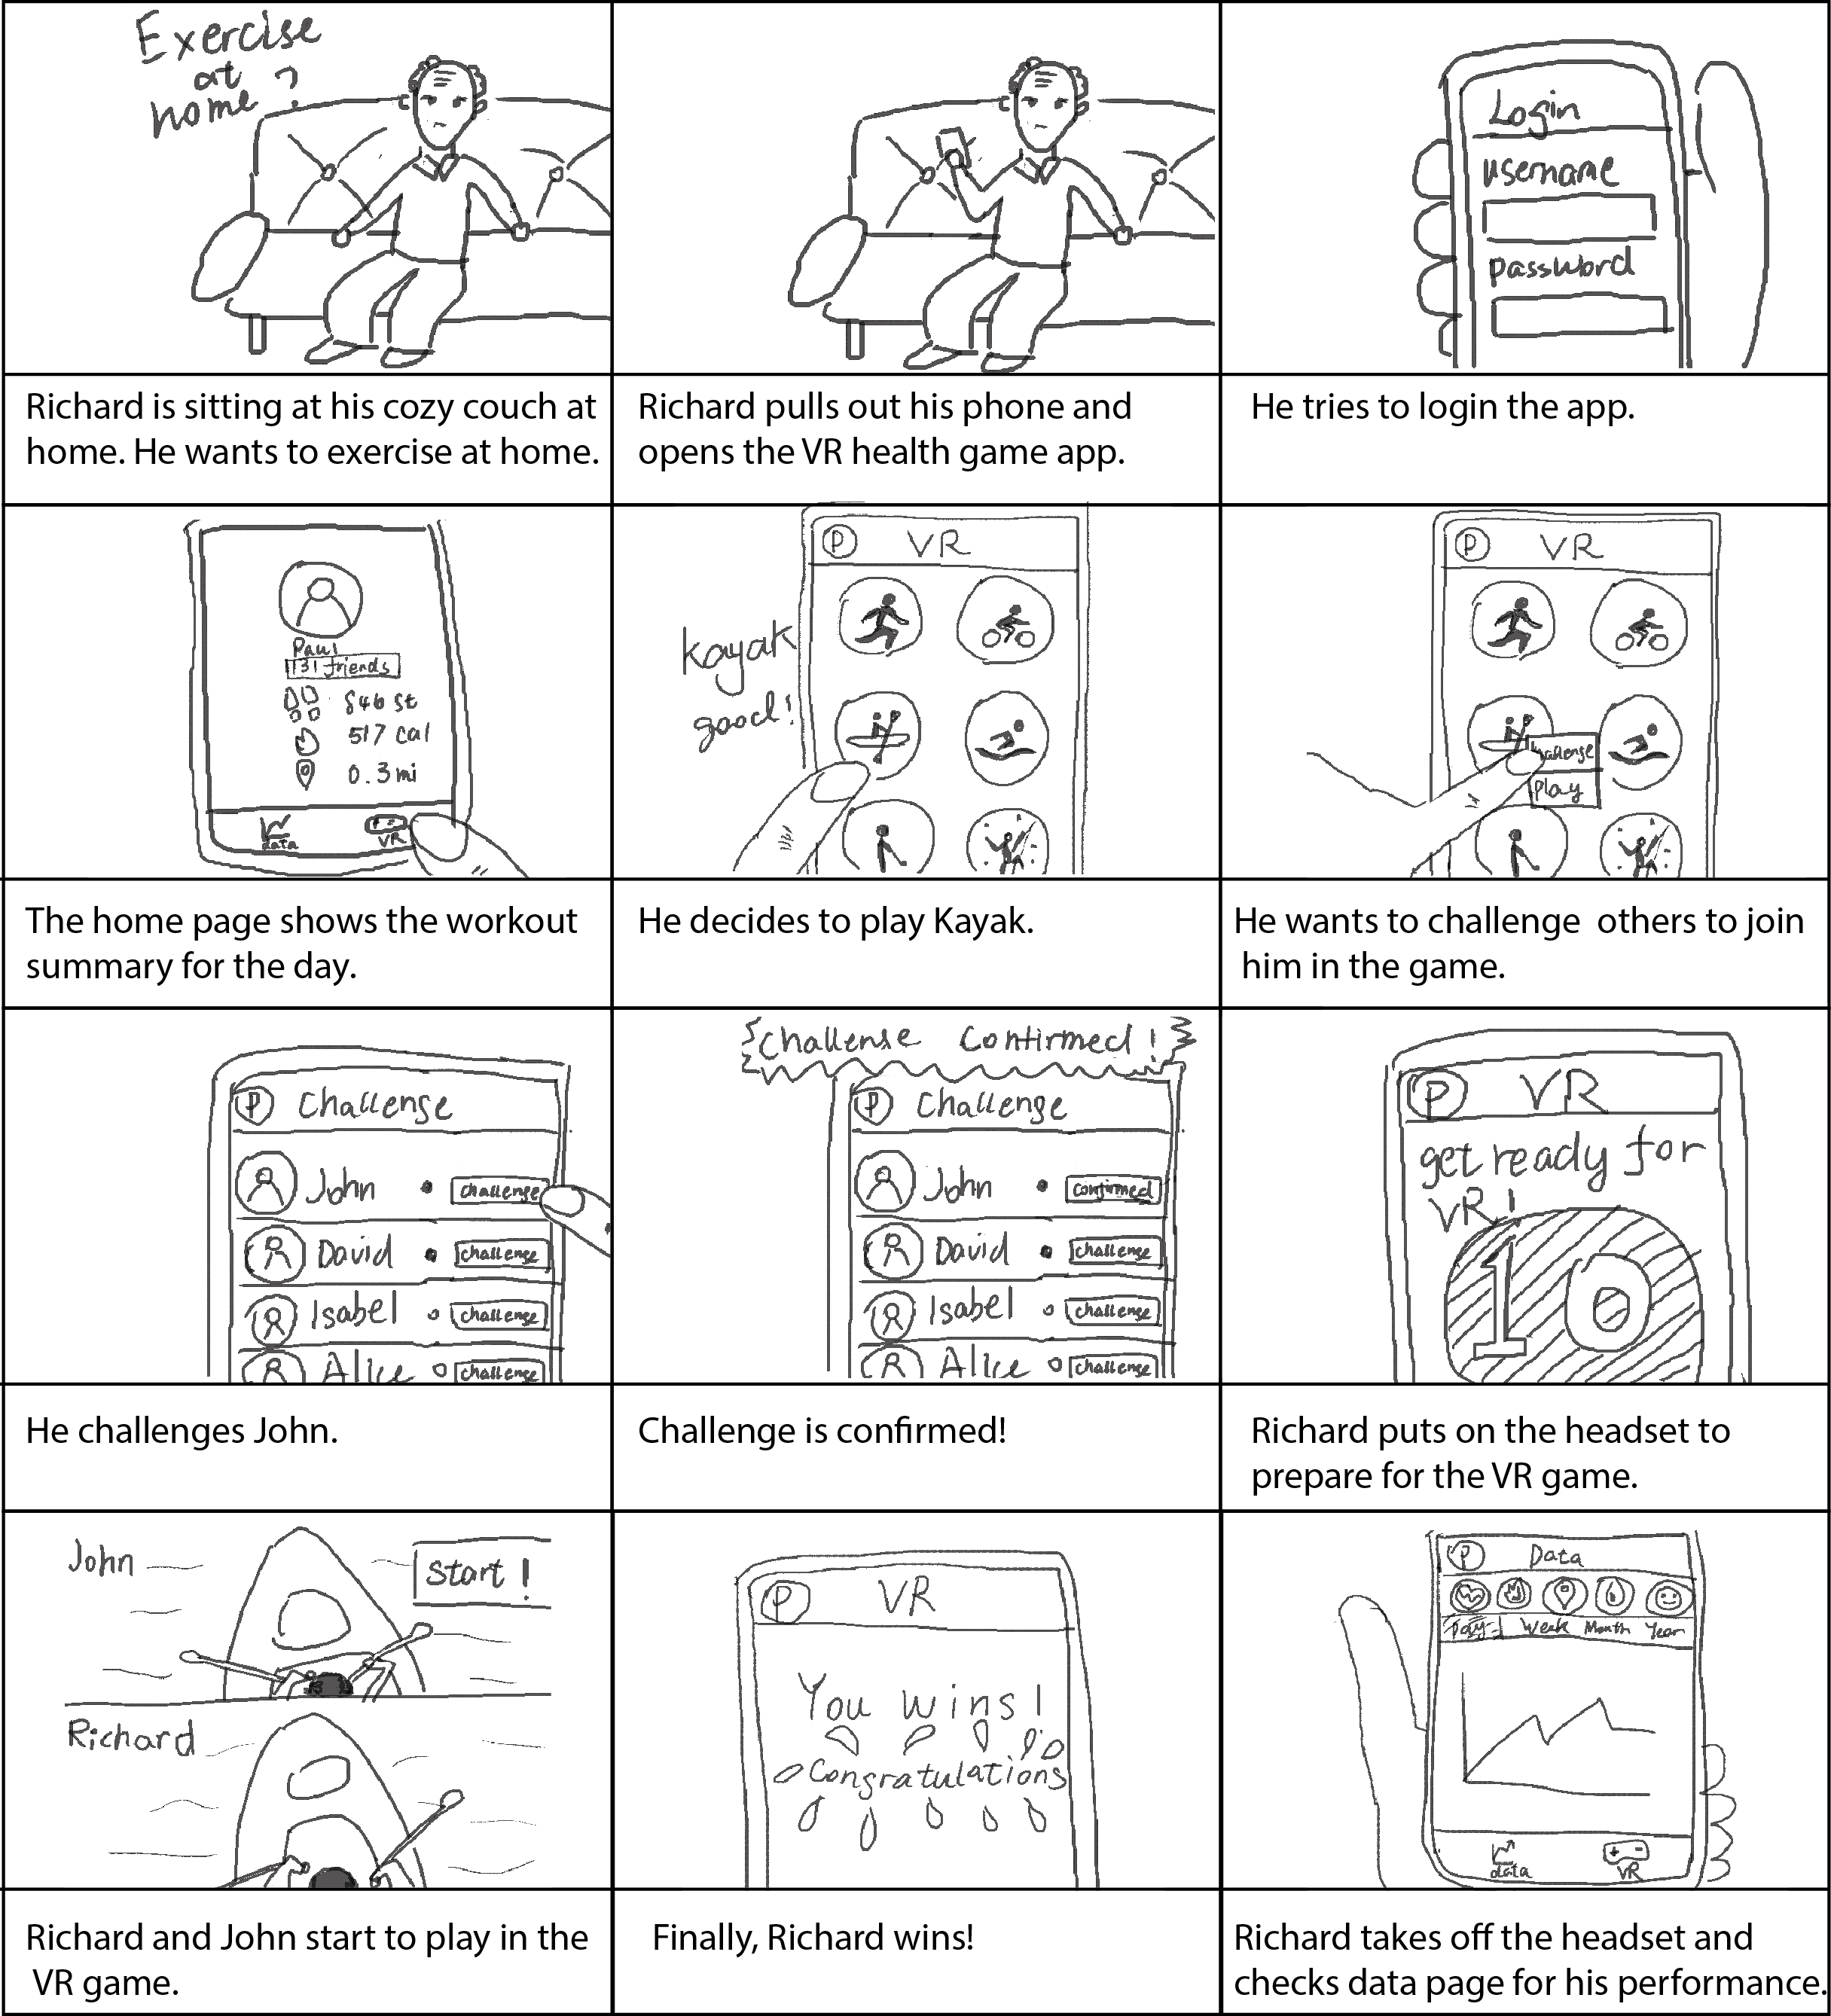 Exercise
at
home?
Richard is sitting at his cozy couch at
home. He wants to exercise at home.
Richard pulls out his phone and
opens the VR health game app.
Login
username
password
He tries to login the app.
Paul
131 friends
846 st
517 cal
0.3mi
data
VR
The home page shows the workout
summary for the day.
P VR
Kayak
good!
He decides to play Kayak.
P VR
challenge
Play
He wants to challenge  others to join
him in the game.
P Challenge
John challenge
David challenge
Isabel challenge
Alice challenge
He challenges John.
Challenge Confirmed!
P Challenge
John confirmed
David challenge
Isabel challenge
Alice challenge
Challenge is confirmed!
P VR
get ready for
VR!
10
Richard puts on the headset to
prepare for the VR game.
John
Start!
Richard
Richard and John start to play in the
VR game.
P VR
You wins!
Congratulations
Finally, Richard wins!
P Data
Day Week Month Year
data VR
Richard takes off the headset and
checks data page for his performance.